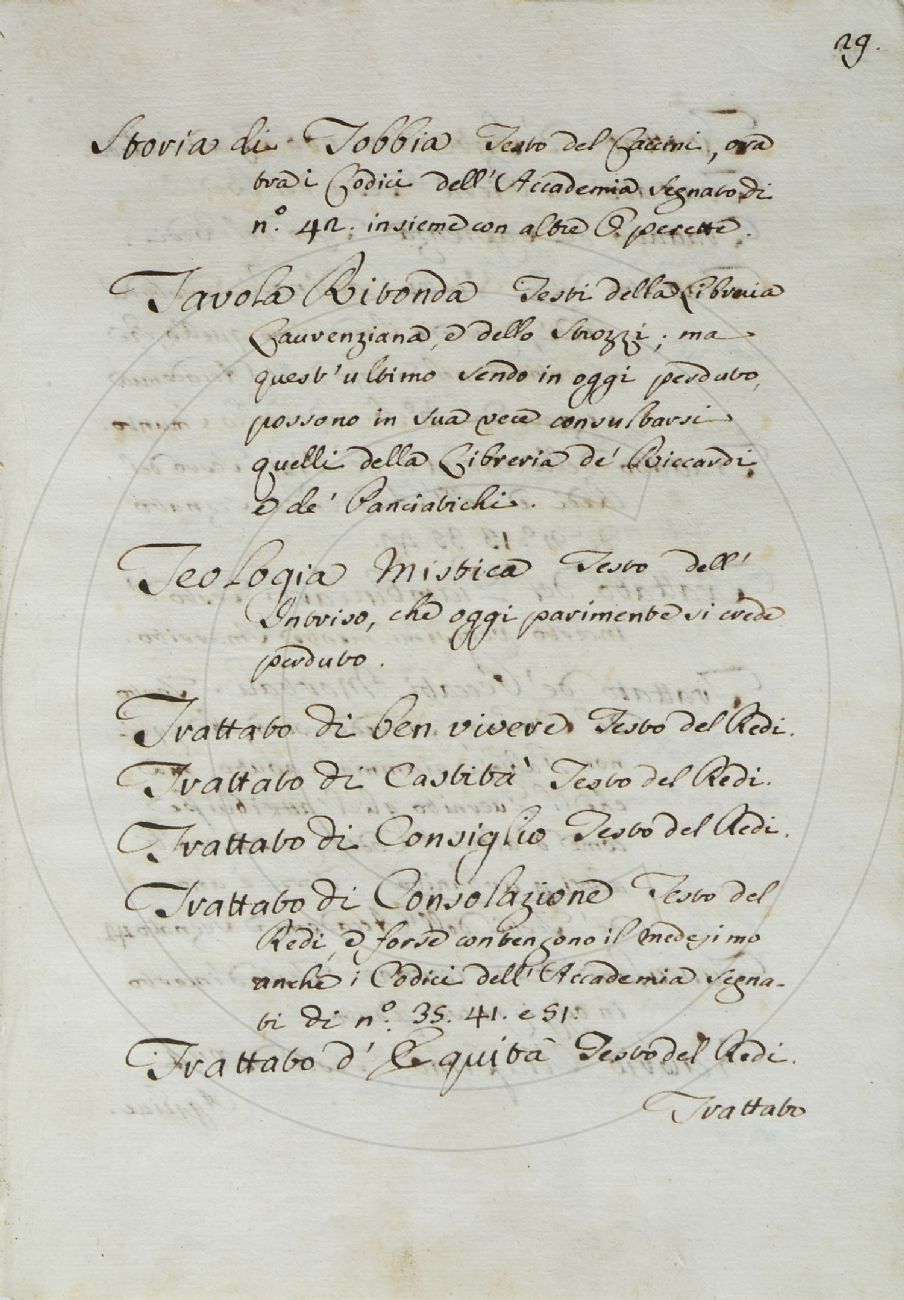 29.
Storia di Tobbia Testo del Caccini, ora
tra i Codici dell'Accademia segnato di
n.º 42. insieme con altre Operette.
Tavola Ritonda Testi della Libreria
Laurenziana, e dello Strozzi; ma
quest'ultimo sendo in oggi perduto,
possono in sua vece consultarsi
quelli della Libreria de' Riccardi
e de' Panciatichi.
Teologia Mistica Testo dell'
Intriso, che oggi parimente si crede
perduto.
Trattato di ben vivere Testo del Redi.
Trattato di Castità Testo del Redi.
Trattato di Consiglio Testo del Redi.
Trattato di Consolazione Testo del
Redi, e forse contengono il medesimo
anche i Codici dell'Accademia segna-
ti di n.º 35. 41. e 51.
Trattato d'Equità Testo del Redi.
Trattato